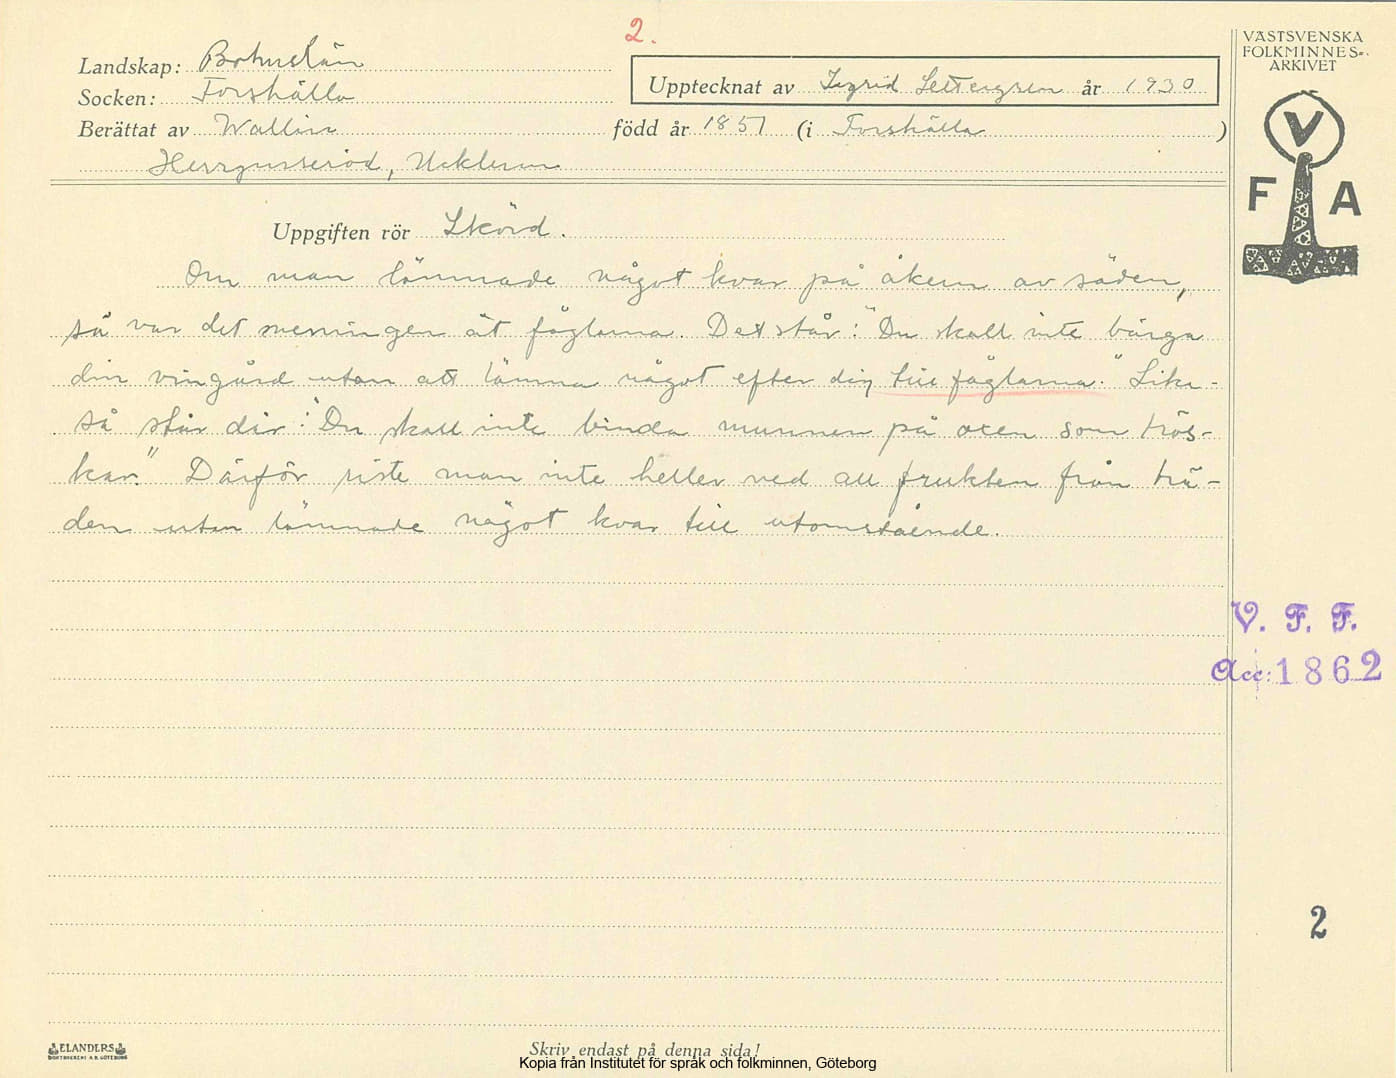 2.
VÄSTSVENSKA
FOLKMINNES-
ARKIVET
V
F A
Landskap: Bohuslän
Socken: Forshälla
Upptecknat av Ingrid Settergren år 1930
Berättat av Wallin född år 1851 (i Forshälla)
Herrgusseröd, Uckleran
Uppgiften rör Skörd.
Om man lämnade något kvar på åkern av säden,
så var det meningen åt fåglarna. Det står: "Du skall inte bärga
din vingård utan att lämna något efter dig till fåglarna." Lika-
så står där: "Du skall inte binda munnen på oxen som trös-
kar." Därför riste man inte heller ned all frukten från trä-
den utan lämnade något kvar till utomstående.
V. F. F.
Acc: 1862
2
ELANDERS
BOKTRYCKERI A.B. GÖTEBORG
Skriv endast på denna sida!
Kopia från Institutet för språk och folkminnen, Göteborg